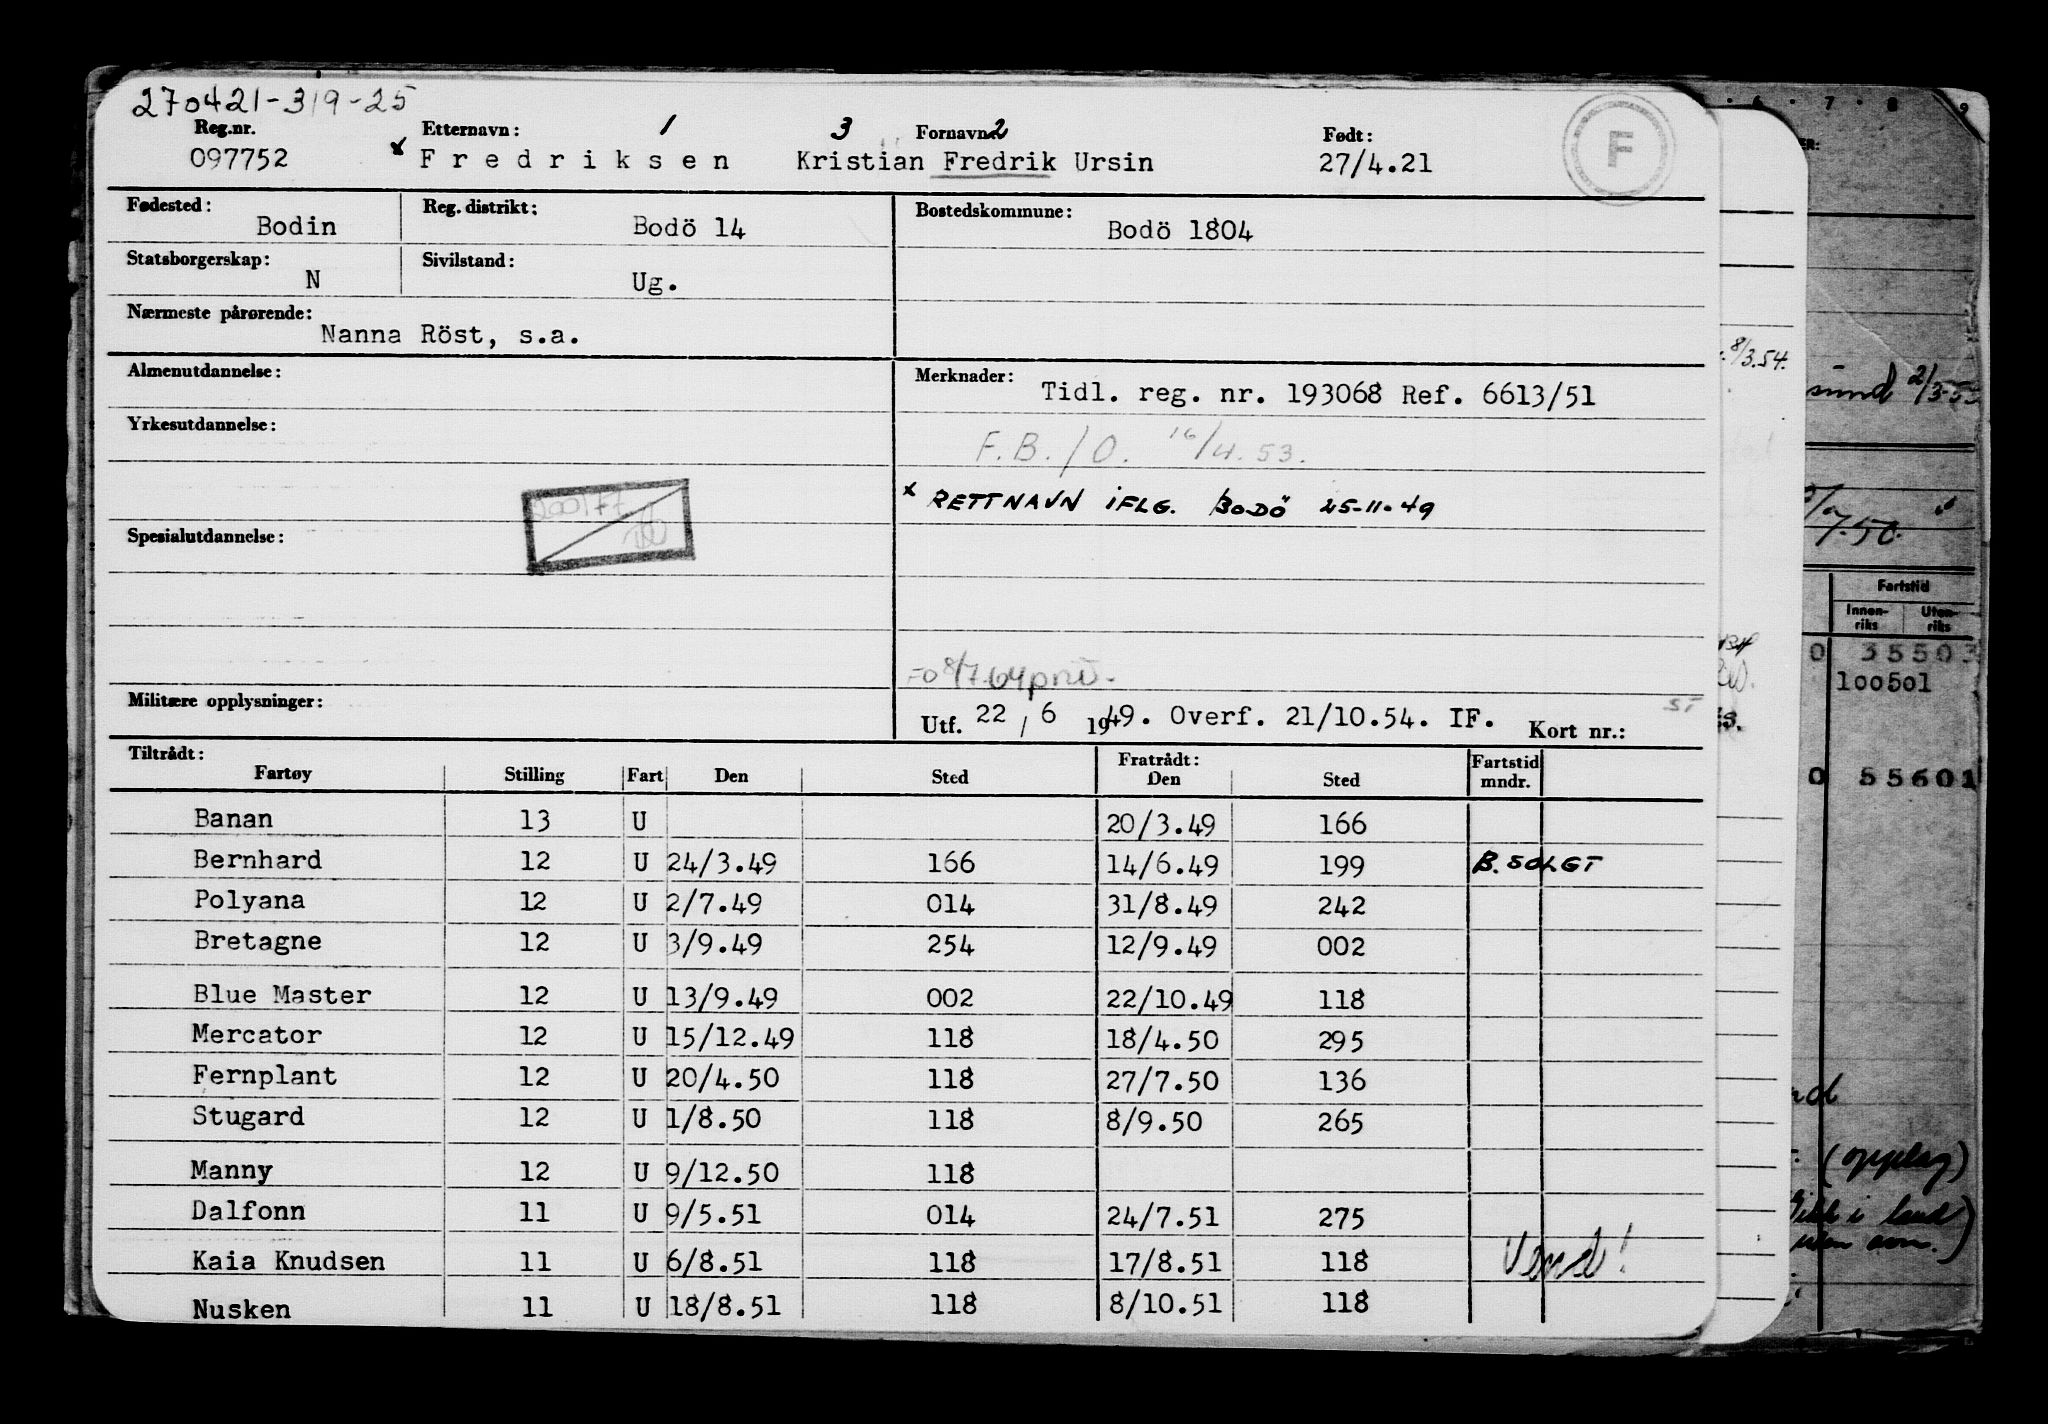 270421-319-25
Reg.nr. Etternavn: 1 3 Fornavn: 2 Født: F
097752 x Fredriksen Kristian Fredrik Ursin 27/4.21
Fødested: Bodin Reg. distrikt: Bodö 14 Bostedskommune: Bodö 1804
Statsborgerskap: N Sivilstand: Ug.
Nærmeste pårørende: Nanna Röst, s.a.
Almenutdannelse: Merknader: Tidl. reg. nr. 193068 Ref. 6613/51
Yrkesutdannelse: F.B./O. 16/4.53.
x RETT NAVN IFLG. BODÖ 25-11-49
Spesialutdannelse:
8/7.64
Militære opplysninger: Utf. 22 / 6 1949. Overf. 21/10.54. IF. Kort nr.: ST
Tiltrådt: Fratrådt: Fartstid
Fartøy Stilling Fart Den Sted Den Sted mndr.
Banan 13 U 20/3.49 166
Bernhard 12 U 24/3.49 166 14/6.49 199 B. SOLGT
Polyana 12 U 2/7.49 014 31/8.49 242
Bretagne 12 U 3/9.49 254 12/9.49 002
Blue Master 12 U 13/9.49 002 22/10.49 118
Mercator 12 U 15/12.49 118 18/4.50 295
Fernplant 12 U 20/4.50 118 27/7.50 136
Stugard 12 U 1/8.50 118 8/9.50 265
Manny 12 U 9/12.50 118
Dalfonn 11 U 9/5.51 014 24/7.51 275
Kaia Knudsen 11 U 6/8.51 118 17/8.51 118 Vend!
Nusken 11 U 18/8.51 118 8/10.51 118
8/3.54.
6 7 8 9
sund
7.50.
Fartstid
Innen- Uten-
riks riks
0 35503
100501
0 55601
(opplag)
i land